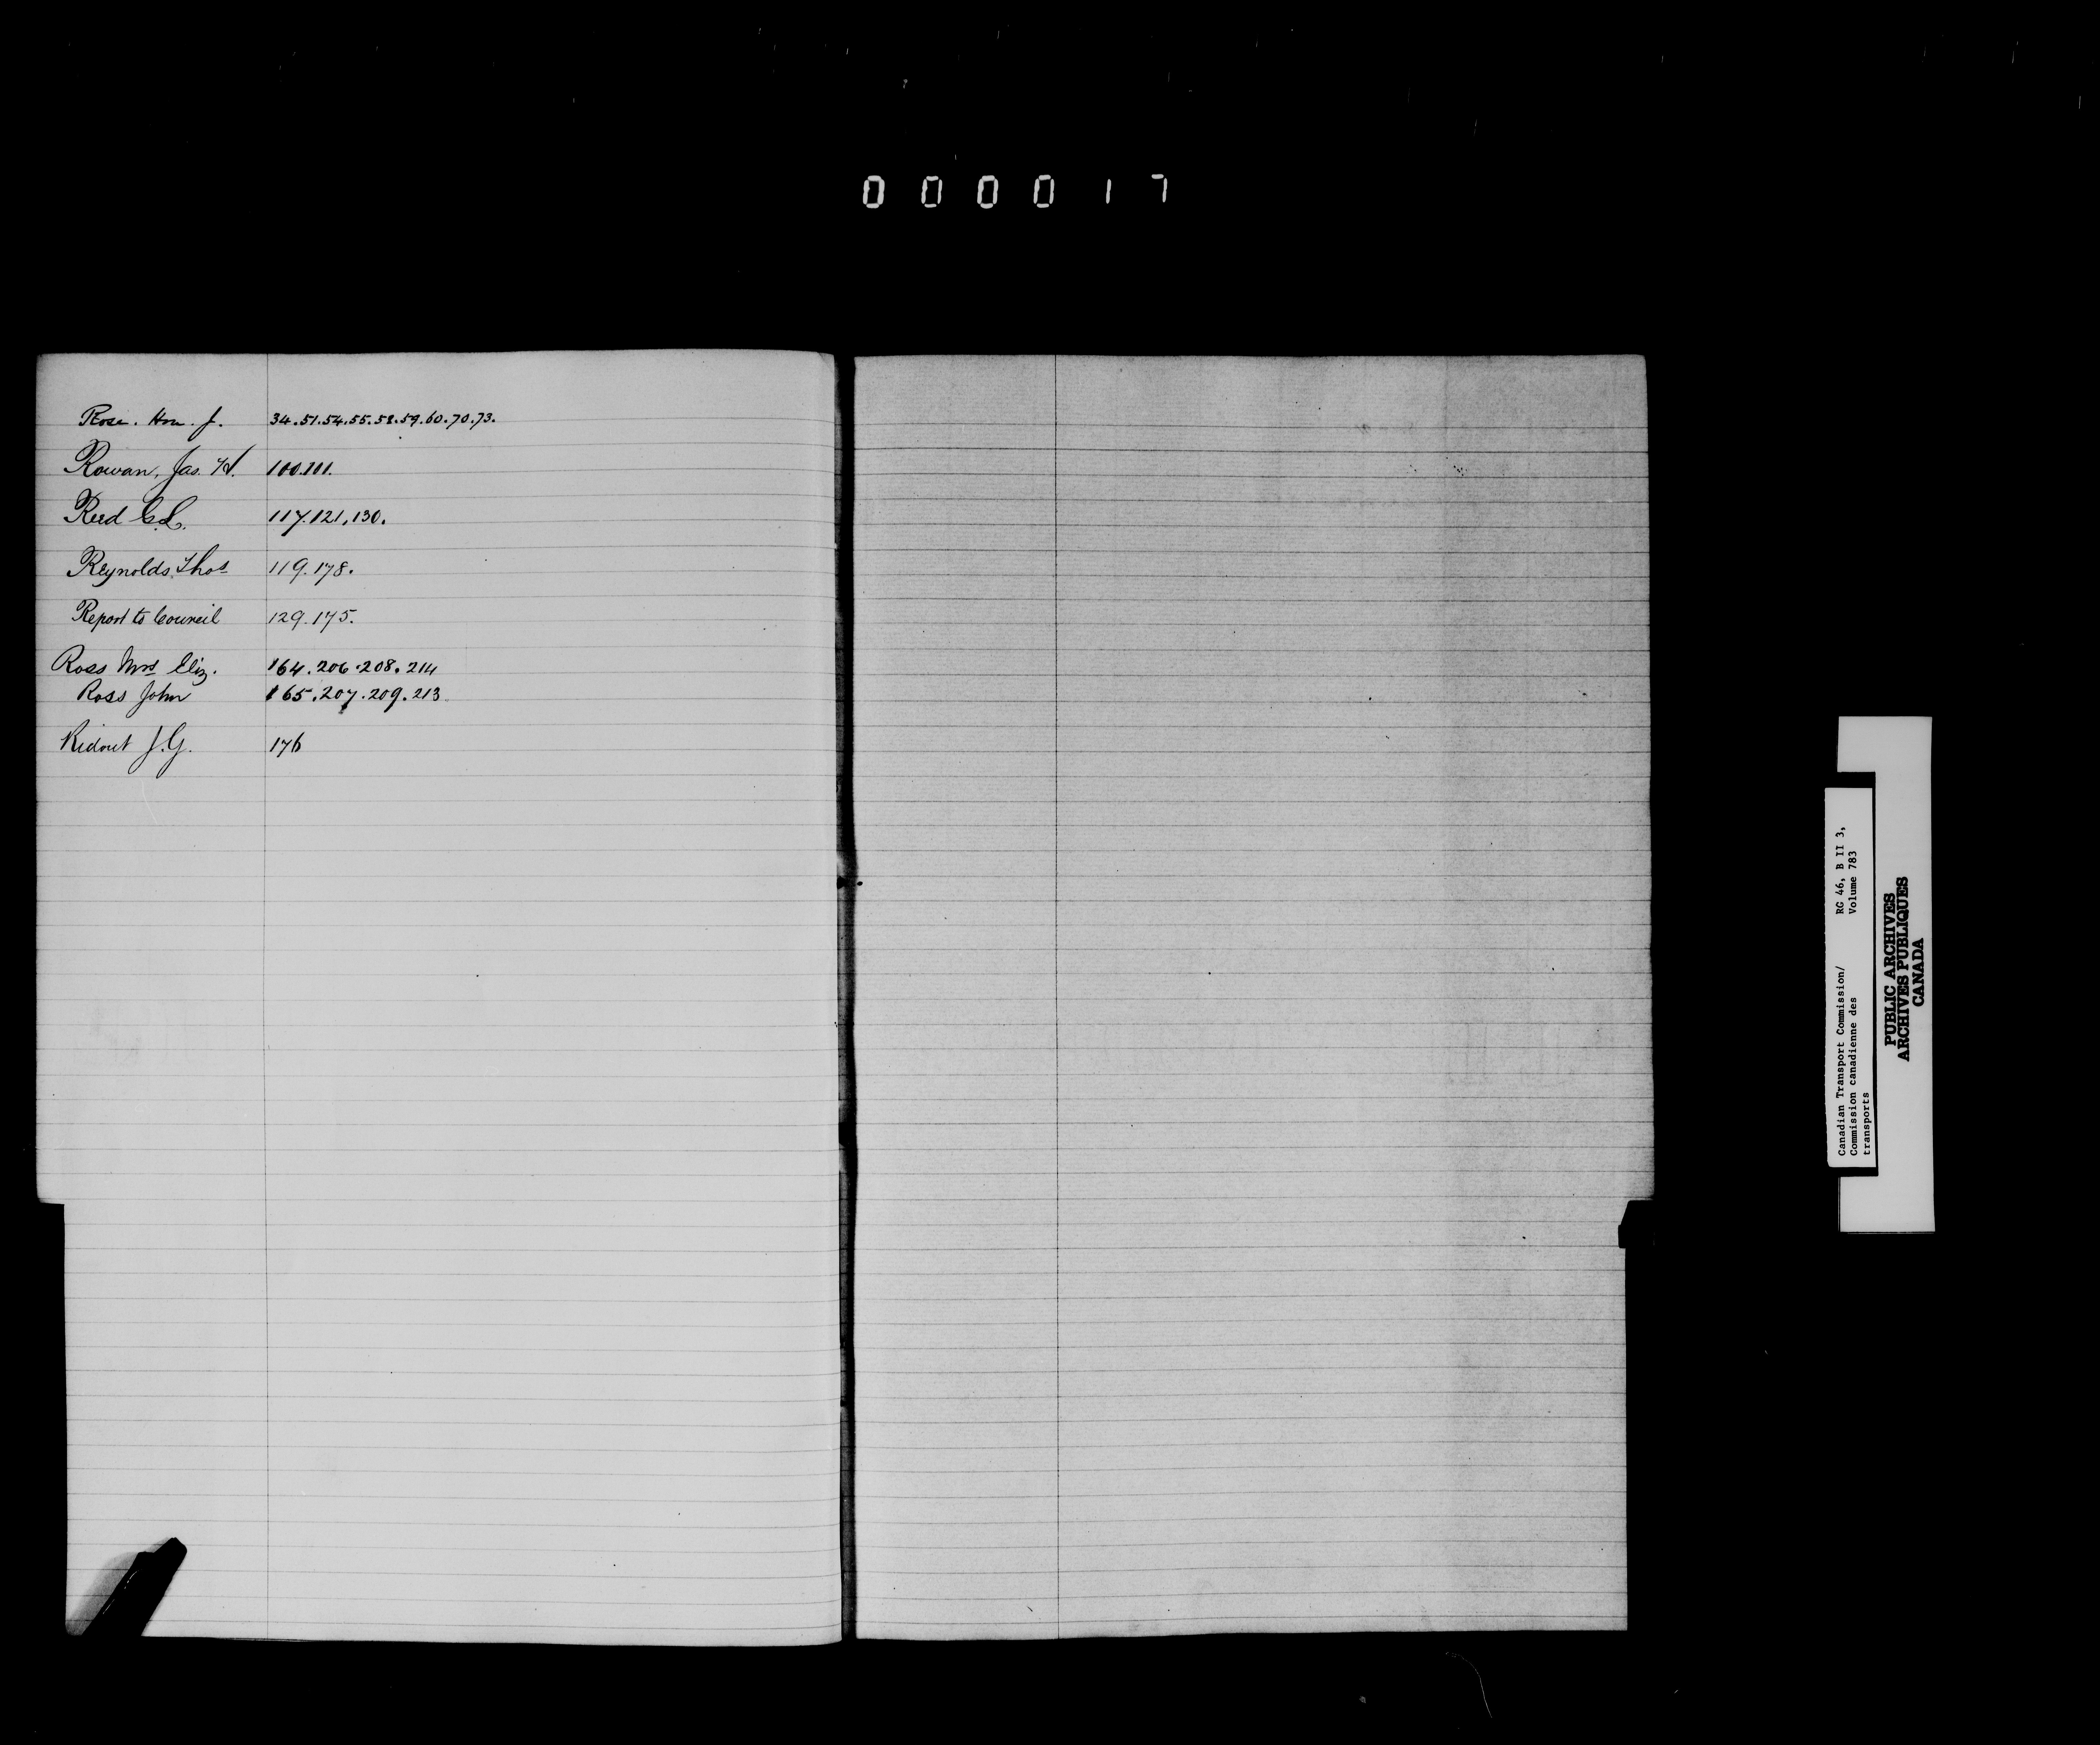 000017
Rose. Hon. J. 34.51.54.55.58.59.60.70.73.
Rowan, Jas. H. 100.101.
Reed C.L. 117.121,130.
Reynolds, Thos 119.178.
Report to Council 129.175.
Ross Mrs Eliz. 164.206.208.214
Ross John 165.207.209.213
Ridout J.G. 176
Canadian Transport Commission/ RG 46, B II 3,
Commission canadienne des Volume 783
transports
PUBLIC ARCHIVES
ARCHIVES PUBLIQUES
CANADA